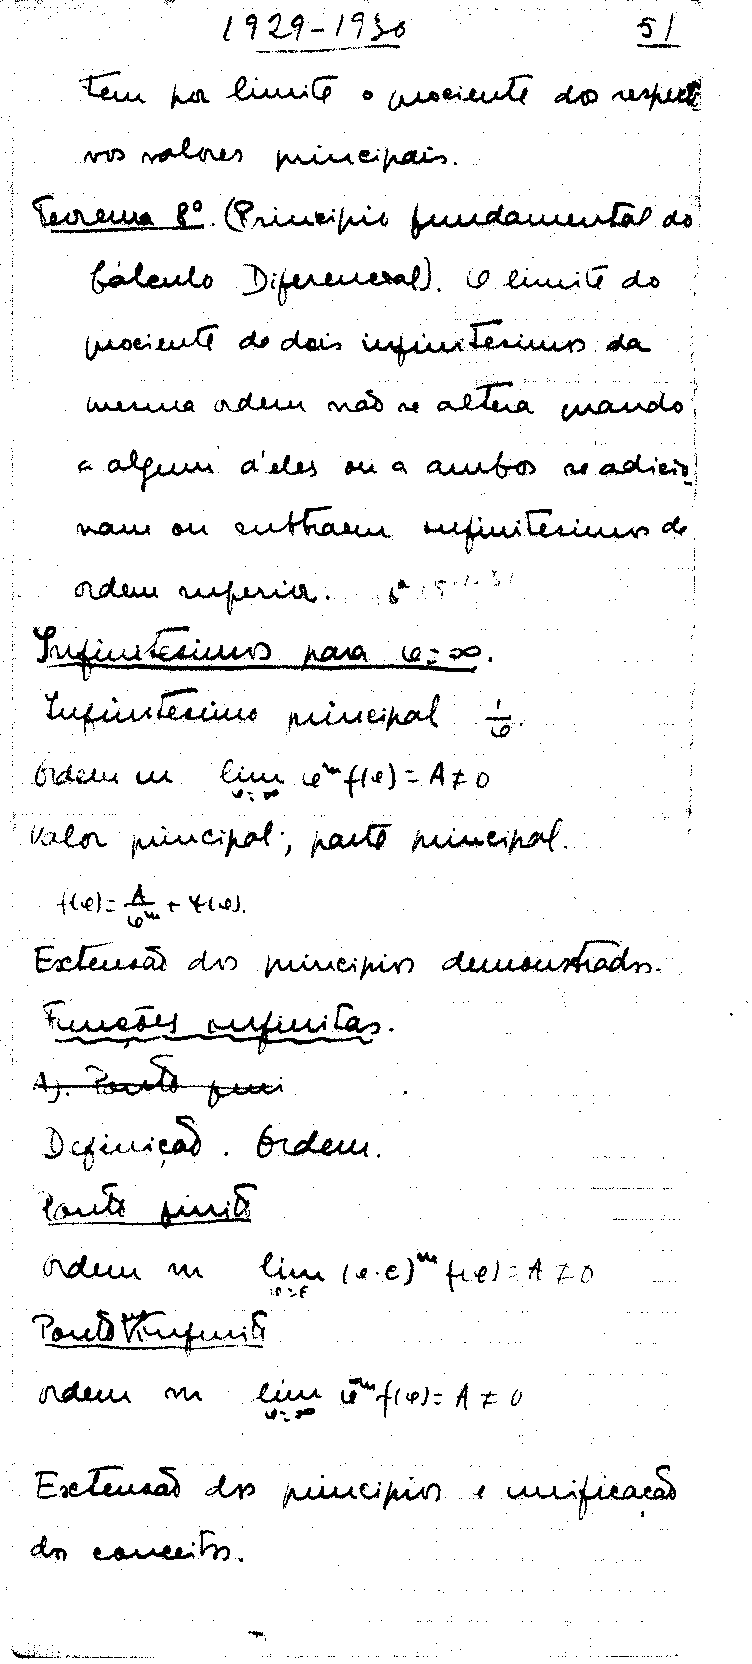 1929-1930 51
tem por limite o quociente dos respecti
vos valores principais.
Teorema 8º. (Principio fundamental do
Cálculo Diferencial). O limite do
quociente de dois infinitésimos da
mesma ordem não se altera quando
a algum d'eles ou a ambos se adicio-
nam ou subtraem infinitésimos de
ordem superior.
Infinitésimos para φ=∞.
Infinitésimo principal 1/φ.
Ordem m lim φ^m f(φ) = A ≠ 0
φ=∞
Valor principal; parte principal.
f(φ) = A/φ^m + ψ(φ).
Extensão dos principios demonstrados.
Funções infinitas.
A). Ponto fini
Definição. Ordem.
Ponto finito
Ordem m lim (φ-c)^m f(φ) = A ≠ 0
φ=c
Ponto infinito
ordem m lim φ^-m f(φ) = A ≠ 0
φ=∞
Extensão dos principios e unificação
dos conceitos.